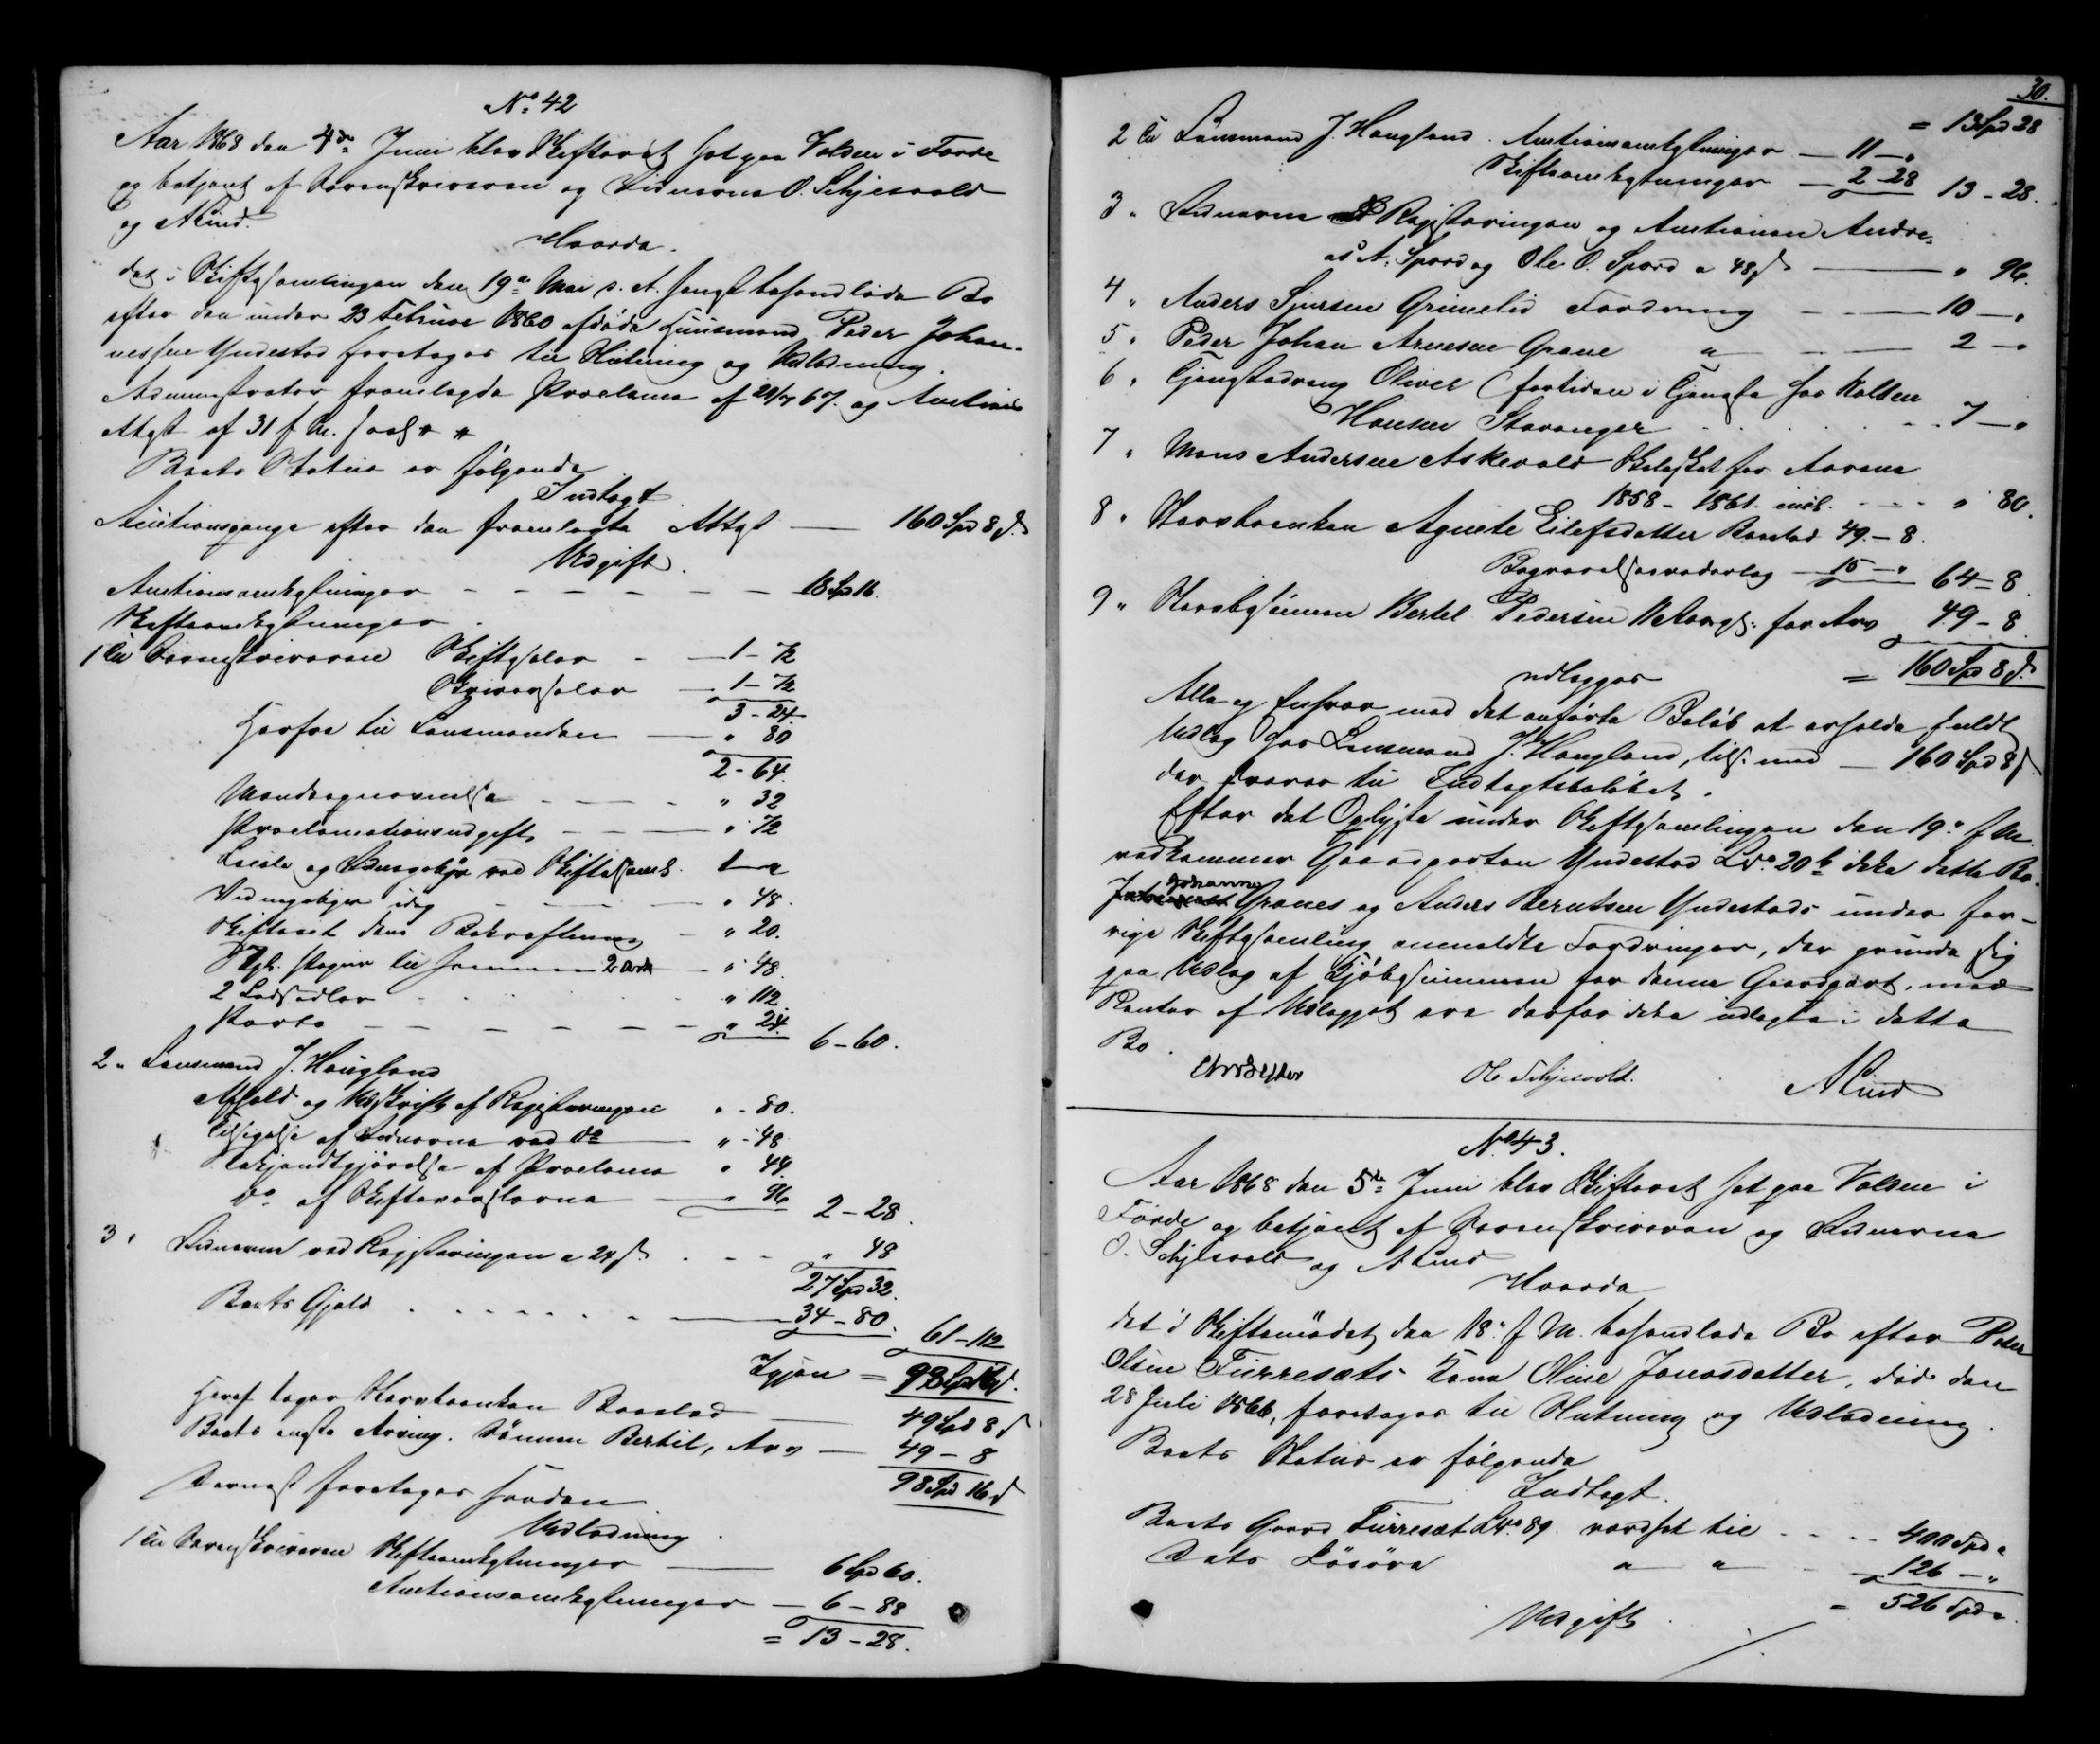 No. 42
Aar 1868 den 4de Juni blev Skifteret sat paa Volden i Førde
og betjent af Sorenskriveren og Vidnerne O. Schjesvold
og A Lind.
Hvorda
det i Skiftesamlingen den 19de Mai d. A. sangl behandlede Bo
efter den under 23 Februar 1860 afdøde Huusmand Peder Johan-
nessen Yndestad foretages til Slutning og Udlodning.
Administrator fremlagde Proclama af 20/7 67. og Auctions
Attest af 31 f M.
Boets Status er følgende
Indtægt
Auctionspenge efter den fremlagte Attest — 160 Spd 8 s.
Udgift.
Auctionsomkostninger — 18 Sp 16.
Skifteomkostninger.
1 til Sorenskriveren Skiftesalær — 1 - 72
Skriversalær — 1 - 72
3 - 24
Herfra til Lensmanden — " 80
2 - 64.
Mandsopnævnelse — " 32
Proclamationsudgift — " 72
Locale og Vidnegebyr ved Skiftesaml. 1 — "
Vidnegebyr idag — " 48.
Skifteret dens Bekræftning — " 20.
Stpl. Papir til samme 2 Ark — " 48.
2 Lodsedler — " 112.
Porto — " 24. 6 - 60.
2 " Lensmand J. Haugland
Afhold og Udskrift af Registeringen " - 80.
Tilsigelse af Vidnerne ved do — " - 48
Bekjendtgjørelse af Proclama " 44.
do af Skiftevarslerne — " 96 2 - 28.
3 " Vidnerne ved Registeringen a 24 s. " 48
27 Spd 32.
Boets Gjeld — 34 - 80. 61 - 112
Igjen = 98 Spd 16 s.
Heraf tager Stervboenken Boeslod — 49 Spd 8 s
Boets eneste Arving. Sønnen Bertil, Arv — 49 - 8
98 Spd 16 s
Dernæst foretages saadan
Udlodning.
1 til Sorenskriveren Skifteomkostninger — 6 Spd 60.
Auctionsomkostninger — 6 - 88
= 13 - 28.
30.
= 13 Spd 28
2 til Lensmand J. Haugland. Auctionsomkostninger — 11 — "
Skifteomkostninger — 2 - 28 13 - 28.
3 " Vidnerne ved Registeringen og Auctionen Andre-
as A. Spord og Ole O. Spord a 48 s — " 96.
4 " Anders Simesen Grimelid Fordring — 10 — "
5 " Peder Johan Arnesen Grane " — 2 — "
6 " Tjenestedreng Oliver (fortiden i Tjeneste hos Kolsten
Hansen Stavanger — 7 — "
7 " Mons Andersen Askevold Skoleskat for Aarene
1858 - 1861. incl. - - - " 80.
8 " Stervboenken Agnete Eilefsdatter Boeslod 49. - 8.
Begravelsesvederlag — 15 — " 64 - 8.
9 " Stervbosønnen Bertel Pedersen for Arv 49 - 8.
= 160 Spd 8 s.
udlægges
Alle og Enhver med det anførte Beløb at erholde fuldt
Udlæg hos Lensmand J. Haugland, tils. med — 160 Spd 8 s.
der svarer til Indtægtsbeløbet.
Efter det Oplyste under Skiftesamlingen den 19de f M.
vedkommer Gaardparten Yndestad Lno. 20 b ikke dette Bo.
Johannes Granes og Anders Berntsen Yndestads under for-
rige Skiftesamling anmeldte Fordringer, der grunde sig
paa Udlæg af Kjøbesummen for denne Gaardpart, med
Renter af Udlægget ere derfor ikke udlagte i dette
Bo.
Ole Schjesvold. A Lind
No. 43.
Aar 1868 den 5te Juni blev Skifteret sat paa Volden i
Førde og betjent af Sorenskriveren og Vidnerne
O. Schjesvold og A Lind
Hvorda
det i Skiftemødet den 18de f M. behandlede Bo efter Peder
Olsen Furresæts Kone Oline Jonasdatter, død den
28 Juli 1866, foretages til Slutning og Udlodning.
Boets Status er følgende
Indtægt.
Boets Gaard Furresæt Lno. 89. værdsat til - - - 400 Spd "
Dets Løsøre " " — 126 — "
= 526 Spd ".
Udgift.